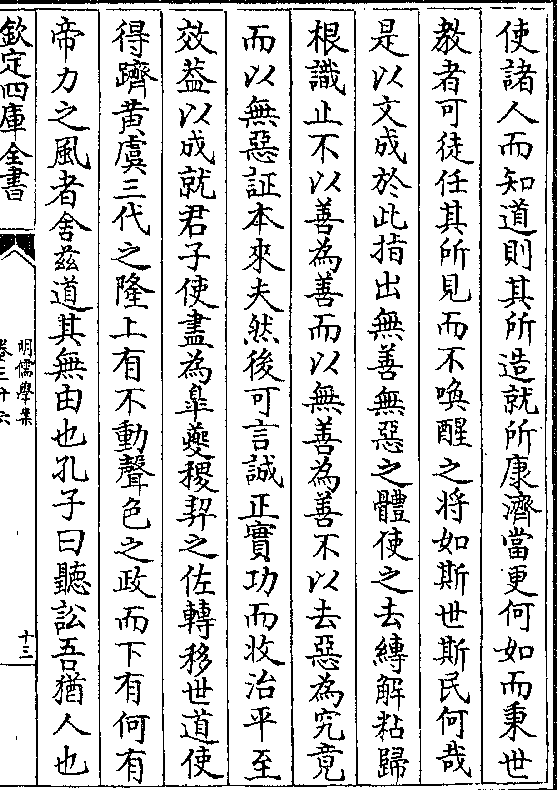 使諸人而知道則其所造就所康濟當更何如而秉世
教者可徒任其所見而不喚醒之将如斯世斯民何哉
是以文成於此指出無善無惡之體使之去縳解粘歸
根識止不以善為善而以無善為善不以去惡為究竟
而以無惡証本來夫然後可言誠正實功而收治平至
效葢以成就君子使盡為臯夔稷契之佐轉移世道使
得躋黄虞三代之隆上有不動聲色之政而下有何有
帝力之風者舍兹道其無由也孔子曰聽訟吾猶人也
欽定四庫全書
明儒學案
卷三十六
十三